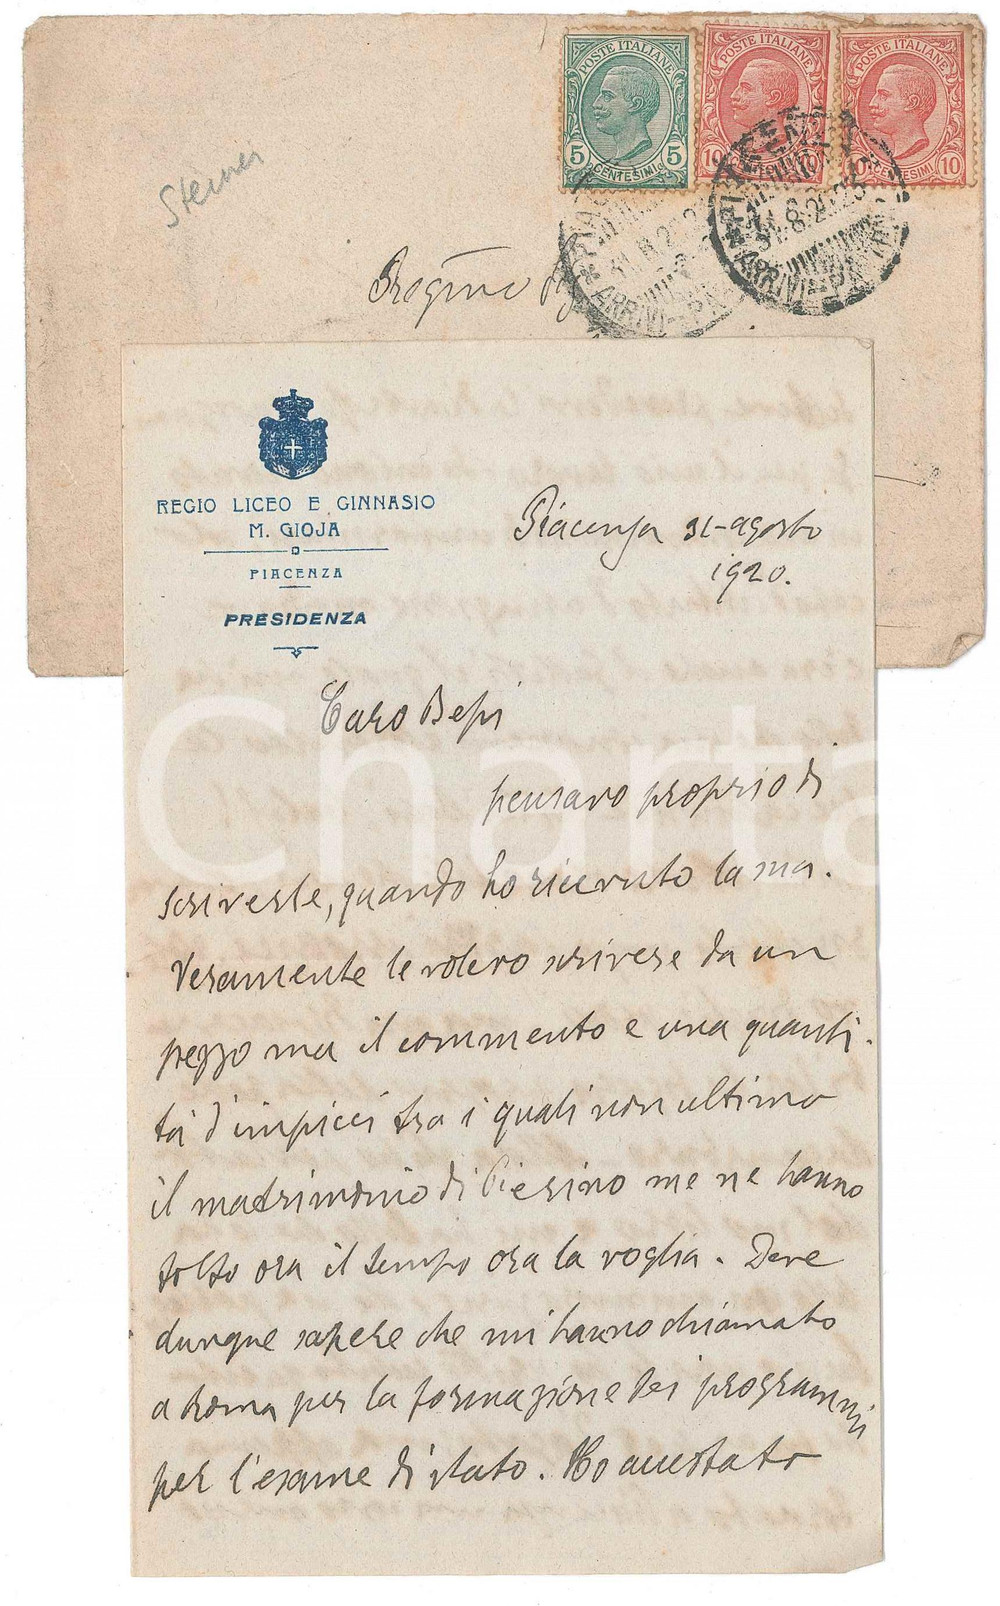 POSTE ITALIANE
5 CENTESIMI 5
POSTE ITALIANE
10 CENTESIMI 10
POSTE ITALIANE
10 CENTESIMI 10
31.8.20
ARRIVI
31.8.20
ARRIVI
Steiner
REGIO LICEO E GINNASIO
M. GIOJA
PIACENZA
PRESIDENZA
Piacenza 31-agosto
1920.
Caro Bepi
pensavo proprio di
scriverle, quando ho ricevuto la sua.
Veramente le volevo scrivere da un
pezzo ma il commento e una quanti-
tà d'impicci tra i quali non ultimo
il matrimonio di Pierino me ne hanno
tolto ora il tempo ora la voglia. Deve
dunque sapere che mi hanno chiamato
a Roma per la formazione dei programmi
per l'esame di stato. Ho accettato
Charta